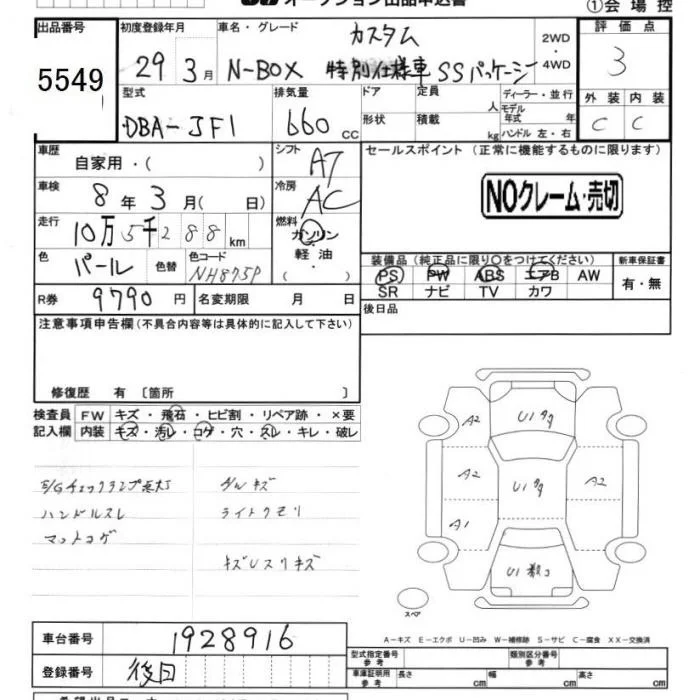 オークション出品申込書
①会場控
出品番号 5549
初度登録年月 29 3月
車名・グレード N-BOX カスタム 特別仕様車 SSパッケージ
2WD・4WD
評価点 3
外装 C 内装 C
型式 DBA-JF1
排気量 660 cc
ドア 形状
定員 人 積載 kg
ディーラー・並行
モデル年式 年
ハンドル 左・右
車歴 自家用・( )
シフト AT
セールスポイント(正常に機能するものに限ります)
NOクレーム・売切
車検 8年3月( 日)
冷房 AC
走行 10万5千288km
燃料 ガソリン・軽油・( )
色 パール 色替 色コード NH875P
装備品(純正品に限り○をつけてください)
PS PW ABS エアB AW
SR ナビ TV カワ
新車保証書 有・無
R券 9790円 名変期限 月 日
後日品
注意事項申告欄(不具合内容等は具体的に記入して下さい)
修復歴 有〔箇所 〕
検査員記入欄
FW キズ・飛石・ヒビ割・リペア跡・×要
内装 キズ・汚レ・コゲ・穴・スレ・キレ・破レ
E/Gチェックランプ点灯
ハンドルスレ
マットコゲ
ダルキズ
ライトクモリ
キズUスリキズ
A2 U1
A2 U1 A2
A1
U1
スペア
A-キズ E-エクボ U-凹み W-補修跡 S-サビ C-腐食 XX-交換済
車台番号 1928916
登録番号 後日
型式指定番号 参考
類別区分番号 参考
車庫証明用 参考 長さ cm 幅 cm 高さ cm